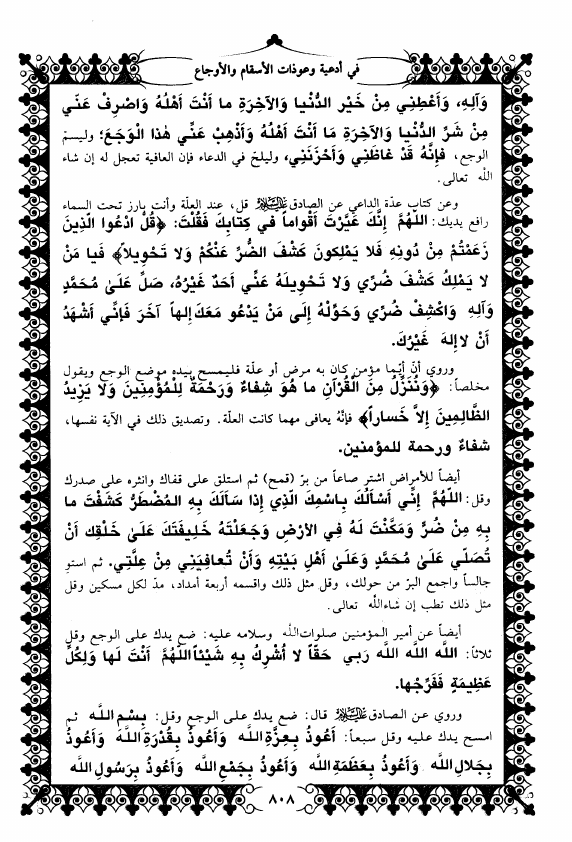 في أدعية وعوذات الأسقام والأوجاع
وَآلِهِ، وَأَعْطِنِي مِنْ خَيْرِ الدُّنْيَا وَالآخِرَةِ ما أَنْتَ أَهْلُهُ وَاصْرِفْ عَنِّي
مِنْ شَرِّ الدُّنْيا وَالآخِرَةِ مَا أَنْتَ أَهْلُهُ وَأَذْهِبْ عَنِّي هٰذا الْوَجَعَ؛ وليسمّ
الوجع، فَإِنَّهُ قَدْ غاظَنِي وَأَحْزَنَنِي، وليلحّ في الدعاء فإن العافية تعجل له إن شاء
الله تعالى.
وعن كتاب عدّة الداعي عن الصادق عليه السلام قل، عند العلّة وأنت بارز تحت السماء
رافع يديك: اللّهُمَّ إِنَّكَ عَيَّرْتَ أَقْواماً في كِتابِكَ فَقُلْتَ: ﴿قُلْ ادْعُوا الَّذِينَ
زَعَمْتُمْ مِنْ دُونِهِ فَلا يَمْلِكونَ كَشْفَ الضُّرِّ عَنْكُمْ وَلا تَحْوِيلاً﴾ فَيا مَنْ
لا يَمْلِكُ كَشْفَ ضُرِّي وَلا تَحْوِيلَهُ عَنِّي أَحَدٌ غَيْرُهُ، صَلِّ عَلىٰ مُحَمَّدٍ
وَآلِهِ وَاكْشِفْ ضُرِّي وَحَوِّلْهُ إِلَى مَنْ يَدْعُو مَعَكَ إِلهاً آخَرَ فَإِنِّي أَشْهَدُ
أَنْ لا إِلهَ غَيْرُكَ.
وروي أنّ أيّما مؤمن كان به مرض أو علّة فليمسح بيده موضع الوجع ويقول
مخلصاً: ﴿وَنُنَزِّلُ مِنَ الْقُرْآنِ ما هُوَ شِفاءٌ وَرَحْمَةٌ لِلْمُؤْمِنِينَ وَلا يَزِيدُ
الظَّالِمِينَ إِلاَّ خَساراً﴾ فإنّهُ يعافى مهما كانت العلّة. وتصديق ذلك في الآية نفسها،
شفاءٌ ورحمة للمؤمنين.
أيضاً للأمراض اشترِ صاعاً من برّ (قمح) ثم استلق على قفاك وانثره على صدرك
وقل: اللّهُمَّ إِنِّي أَسْأَلُكَ بِاسْمِكَ الَّذِي إِذا سَأَلَكَ بِهِ المُضْطَرُّ كَشَفْتَ ما
بِهِ مِنْ ضُرٍّ وَمَكَّنْتَ لَهُ فِي الأرْضِ وَجَعَلْتَهُ خَلِيفَتَكَ عَلىٰ خَلْقِكَ أَنْ
تُصَلِّيَ عَلىٰ مُحَمَّدٍ وَعَلىٰ أَهْلِ بَيْتِهِ وَأَنْ تُعافِيَنِي مِنْ عِلَّتِي. ثم استوِ
جالساً واجمع البرّ من حولك، وقل مثل ذلك واقسمه أربعة أمداد، مدّ لكل مسكين وقل
مثل ذلك تطب إن شاءالله تعالى.
أيضاً عن أمير المؤمنين صلوات الله وسلامه عليه: ضع يدك على الوجع وقل
ثلاثاً: اللهُ اللهُ اللهُ رَبي حَقّاً لا أُشْرِكُ بِهِ شَيْئاً اللّهُمَّ أَنْتَ لَها وَلِكُلِّ
عَظِيمَةٍ فَفَرِّجْها.
وروي عن الصادق عليه السلام قال: ضع يدك على الوجع وقل: بِسْمِ اللهِ ثم
امسح يدك عليه وقل سبعاً: أَعُوذُ بِعِزَّةِ اللهِ وَأَعُوذُ بِقُدْرَةِ اللهِ وَأَعُوذُ
بِجَلالِ اللهِ وَأَعُوذُ بِعَظَمَةِ اللهِ وَأَعُوذُ بِجَمْعِ اللهِ وَأَعُوذُ بِرَسُولِ اللهِ
٨٠٨